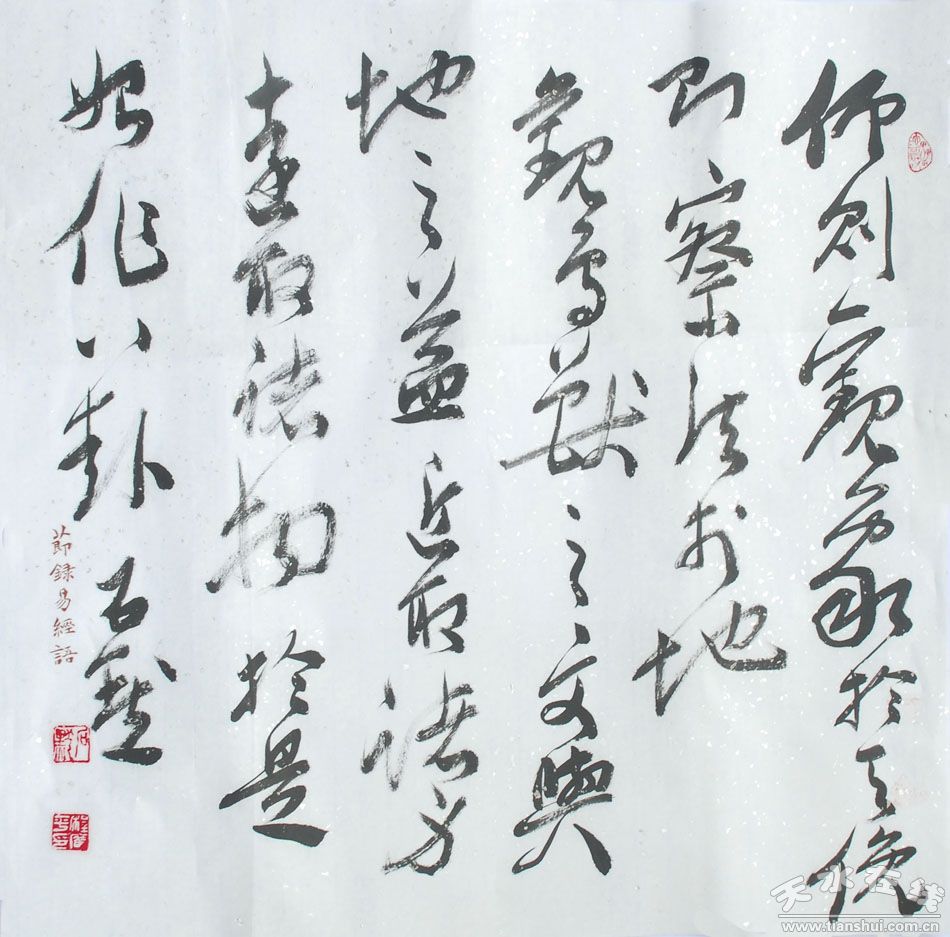 仰则觀象於天俯
则察法於地
觀鸟獸之文與
地之益近取諸身
遠取諸物於是
始作八卦
石懋
節録易經語
天水在线
www.tianshui.com.cn